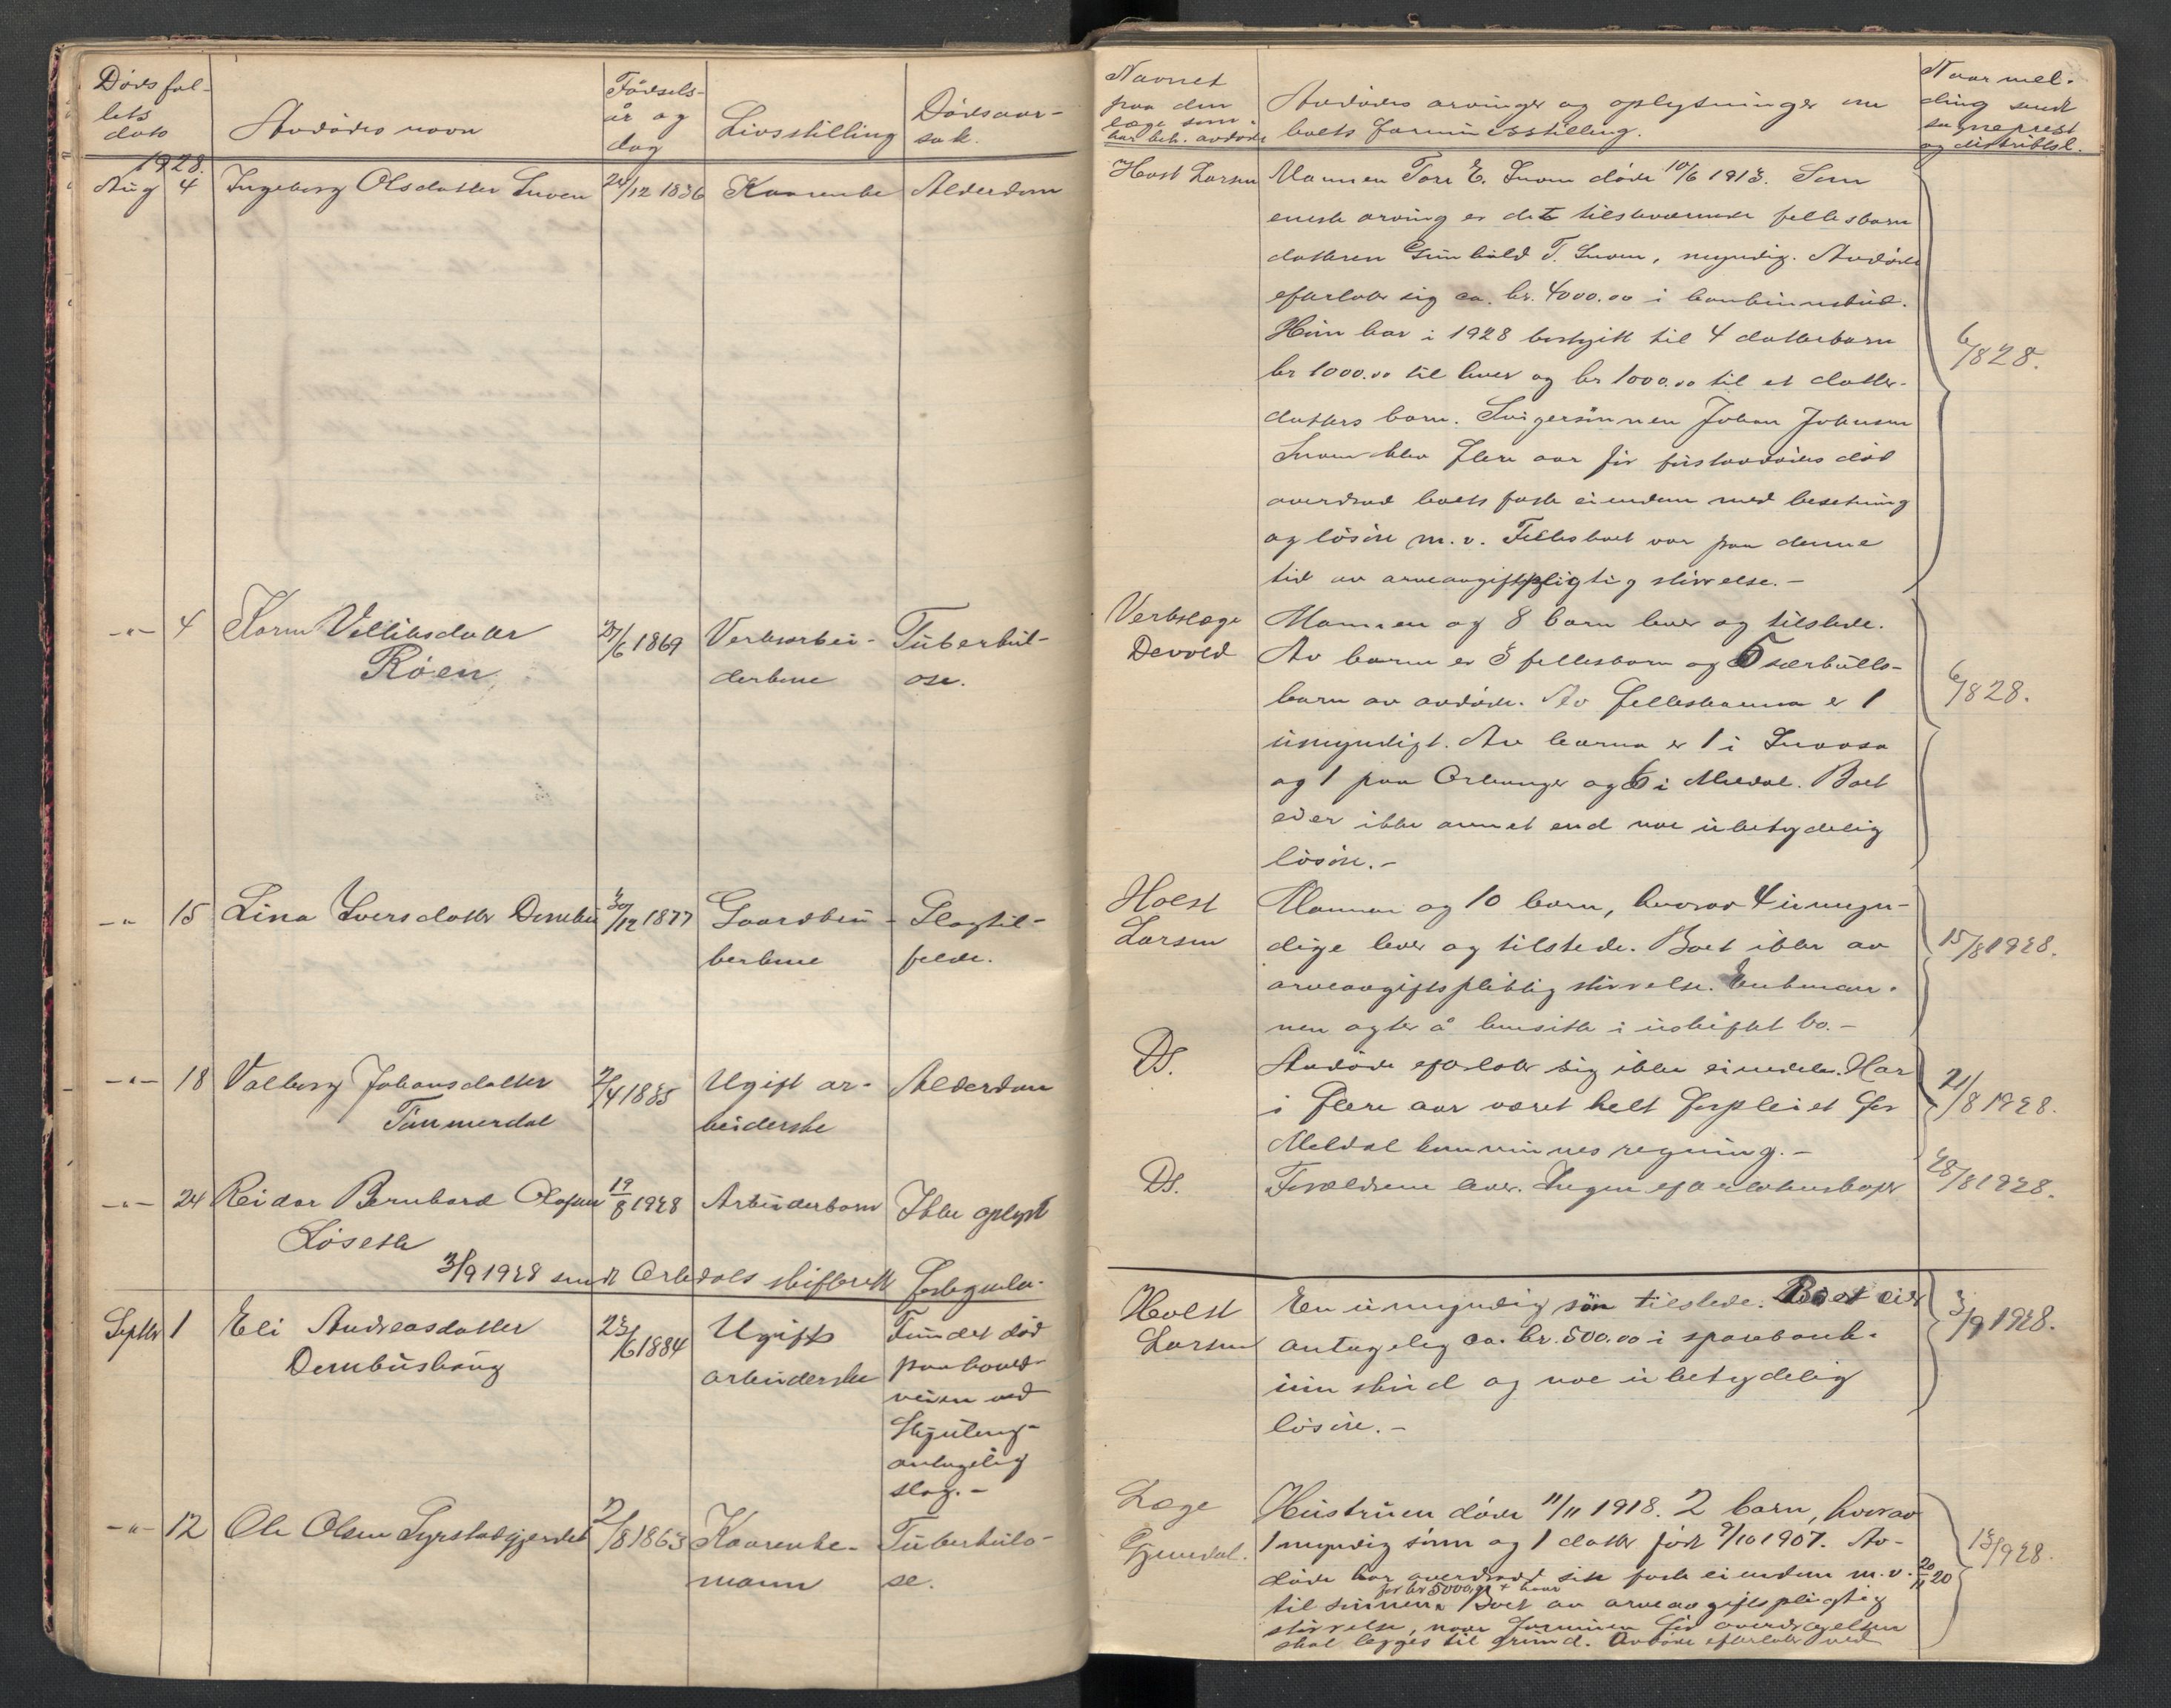 Dødsfal-
lets
dato
Avdødes navn
Fødsels-
år og
dag
Livsstilling
Dødsaar-
sak.
1928.
Aug 4 Ingeborg Olsdatter Snoen 24/12 1836 Kaarenke Alderdom
-"- 4 Karen Velliksdatter 27/6 1869 Verksarbei- Tuberkul-
Røen derkone ose.
-"- 15 Lina Iversdatter 30/12 1877 Gaardbru- Slagtil-
kerkone felde.
-"- 18 Valborg Johansdatter 2/4 1835 Ugift ar- Alderdom
Tømmerdal beiderske
-"- 24 Reidar Bernhard Olafsen 19/8 1928 Arbeiderbarn Ikke oplyst
Løseth
3/9 1928 sendt Orkdals skifterett
Septbr 1 Eli Andreasdatter 23/6 1884 Ugift Fundet død
Drugudshaug arbeiderske paa hoved-
veien ved
antagelig
slag.-
-"- 12 Ole Olsen Syrstadgjerdet 2/8 1863 Kaarenke- Tuberkulo-
mann se.
Navnet
paa den
læge som
har beh. avdøde
Avdødes arvinger og oplysninger om
boets formuesstilling.
Naar mel-
ding sendt
sogneprest
og distriktsl.
Holst Larsen Mannen Tore E. Snoen døde 10/6 1913. Som
eneste arving er det tilstedeværende fellesbarn
datteren Gunhild T. Snoen, myndig. Avdøde
efterlot sig ca. kr. 4000.00 i bankinnskud.
Hun har i 1928 bortgitt til 4 datterbarn
kr 1000.00 til hver og kr 1000.00 til et datter-
datters barn. Svigersønnen Johan Johnsen
Snoen blev flere aar før førstavdødes død
overdrad boets faste eiendom med besetning
og løsøre m.v. Fellesboet var paa denne
tid av arveavgiftspligtig størrelse.-
6/8 28.
Verkslæge Mannen og 8 barn lever og tilstede.
Devold Av barna er 3 fellesbarn og 5 særkulls-
barn av avdøde. Av fellesbarna er 1
umyndigt. Av barna er 1 i Snaasa
og 1 paa Orkanger og 6 i Meldal. Boet
eier ikke annet end noe ubetydelig
løsøre.-
6/8 28.
Holst Mannen og 10 barn, hvorav 4 umyn-
Larsen dige lever og tilstede. Boet ikke av
arveavgiftspliktig størrelse. Enkeman-
nen agter å hensitte i uskiftet bo.-
15/8 1928.
Ds. Avdøde efterlot sig ikke eiendele. Har
i flere aar været helt forpleiet for
Meldal kommunes regning.-
21/8 1928.
Ds. Forældrene lever. Ingen efterlatenskaper
28/8 1928.
Holst En umyndig søn tilstede. Boet eier
Larsen antagelig ca. kr. 500.00 i sparebank-
innskud og noe ubetydelig
løsøre.-
3/9 1928.
Læge Hustruen døde 11/11 1918. 2 barn, hvorav
Gjendal. 1 myndig sønn og 1 datter født 9/10 1907. Av-
døde har overdradd sin faste eiendom m.v. 20/11 20
for kr 5000,00 + kaar
til sønnen. Boet av arveavgiftspligtig
størrelse, naar formuen før overdragelsen
skal legges til grund. Avdøde efterlot ved
13/9 28.